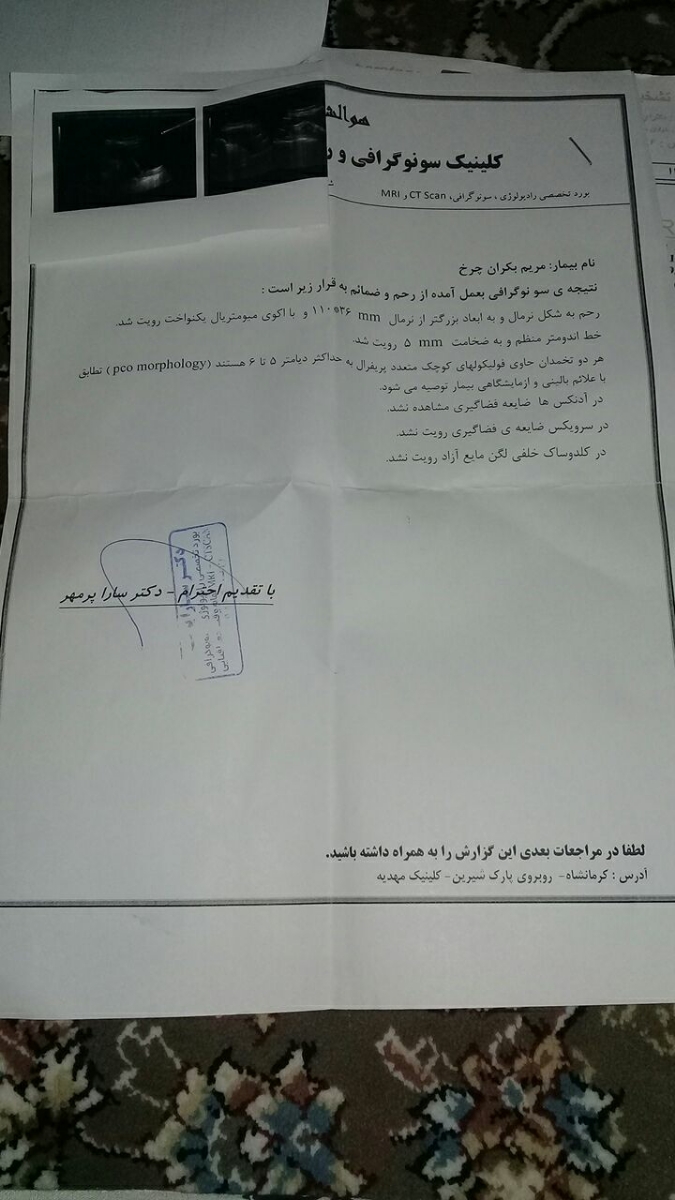 هوالش
کلینیک سونوگرافی و ر
بورد تخصصی رادیولوژی ، سونوگرافی، CT Scan و MRI
نام بیمار: مریم بکران چرخ
نتیجه ی سو نوگرافی بعمل آمده از رحم و ضمائم به قرار زیر است :
رحم به شکل نرمال و به ابعاد بزرگتر از نرمال ۱۱۰*۳۶ mm و با اکوی میومتریال یکنواخت رویت شد.
خط اندومتر منظم و به ضخامت ۵ mm رویت شد.
هر دو تخمدان حاوی فولیکولهای کوچک متعدد پریفرال به حداکثر دیامتر ۵ تا ۶ هستند (pco morphology) تطابق
با علائم بالینی و ازمایشگاهی بیمار توصیه می شود.
در آدنکس ها ضایعه فضاگیری مشاهده نشد.
در سرویکس ضایعه ی فضاگیری رویت نشد.
در کلدوساک خلفی لگن مایع آزاد رویت نشد.
با تقدیم احترام – دکتر سارا پرمهر
لطفا در مراجعات بعدی این گزارش را به همراه داشته باشید.
آدرس : کرمانشاه- روبروی پارک شیرین- کلینیک مهدیه